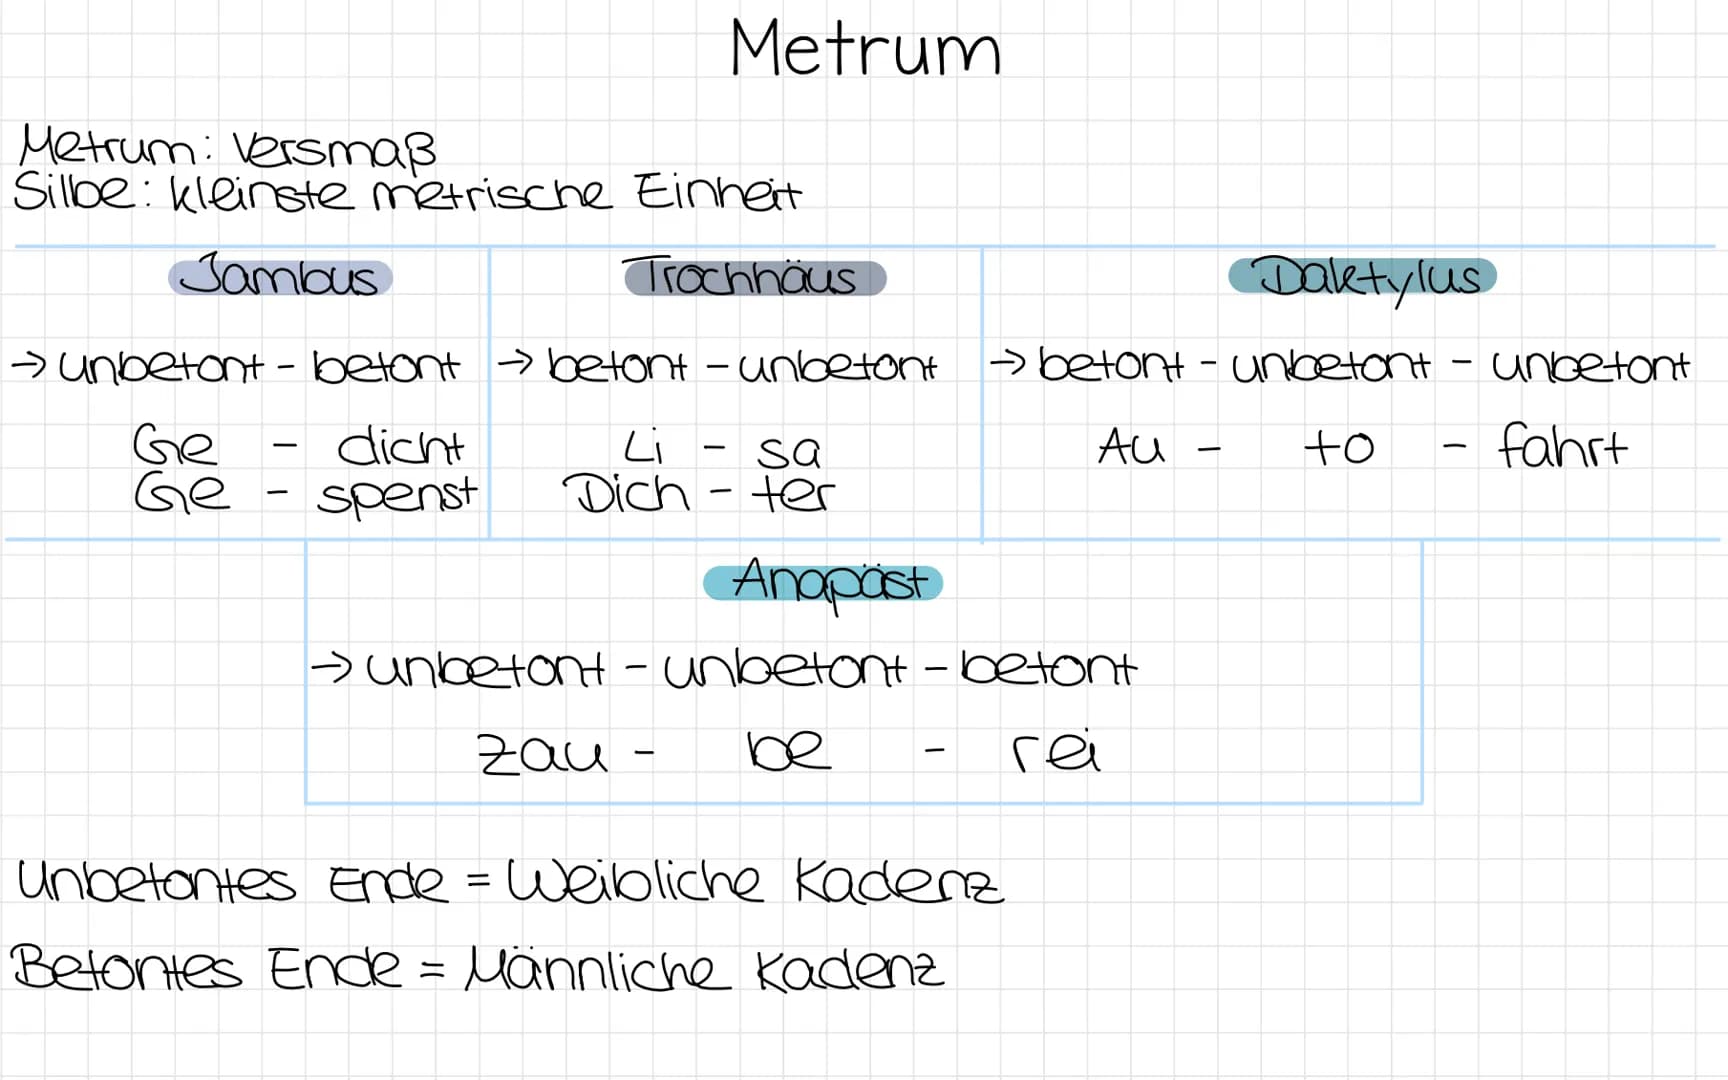 Metrum
Metrum: Versmaß
Silbe: kleinste metrische Einheit
Jambus
→ unbetont - betont
Ge - dicht
Ge - spenst
Trochhäus
→ betont - unbetont
Li - sa
Dich - ter
Daktylus
→ betont - unbetont - unbetont
Au - to - fahrt
Anapäst
→ unbetont - unbetont - betont
zau - be - rei
Unbetontes Ende = Weibliche Kadenz
Betontes Ende = Männliche Kadenz